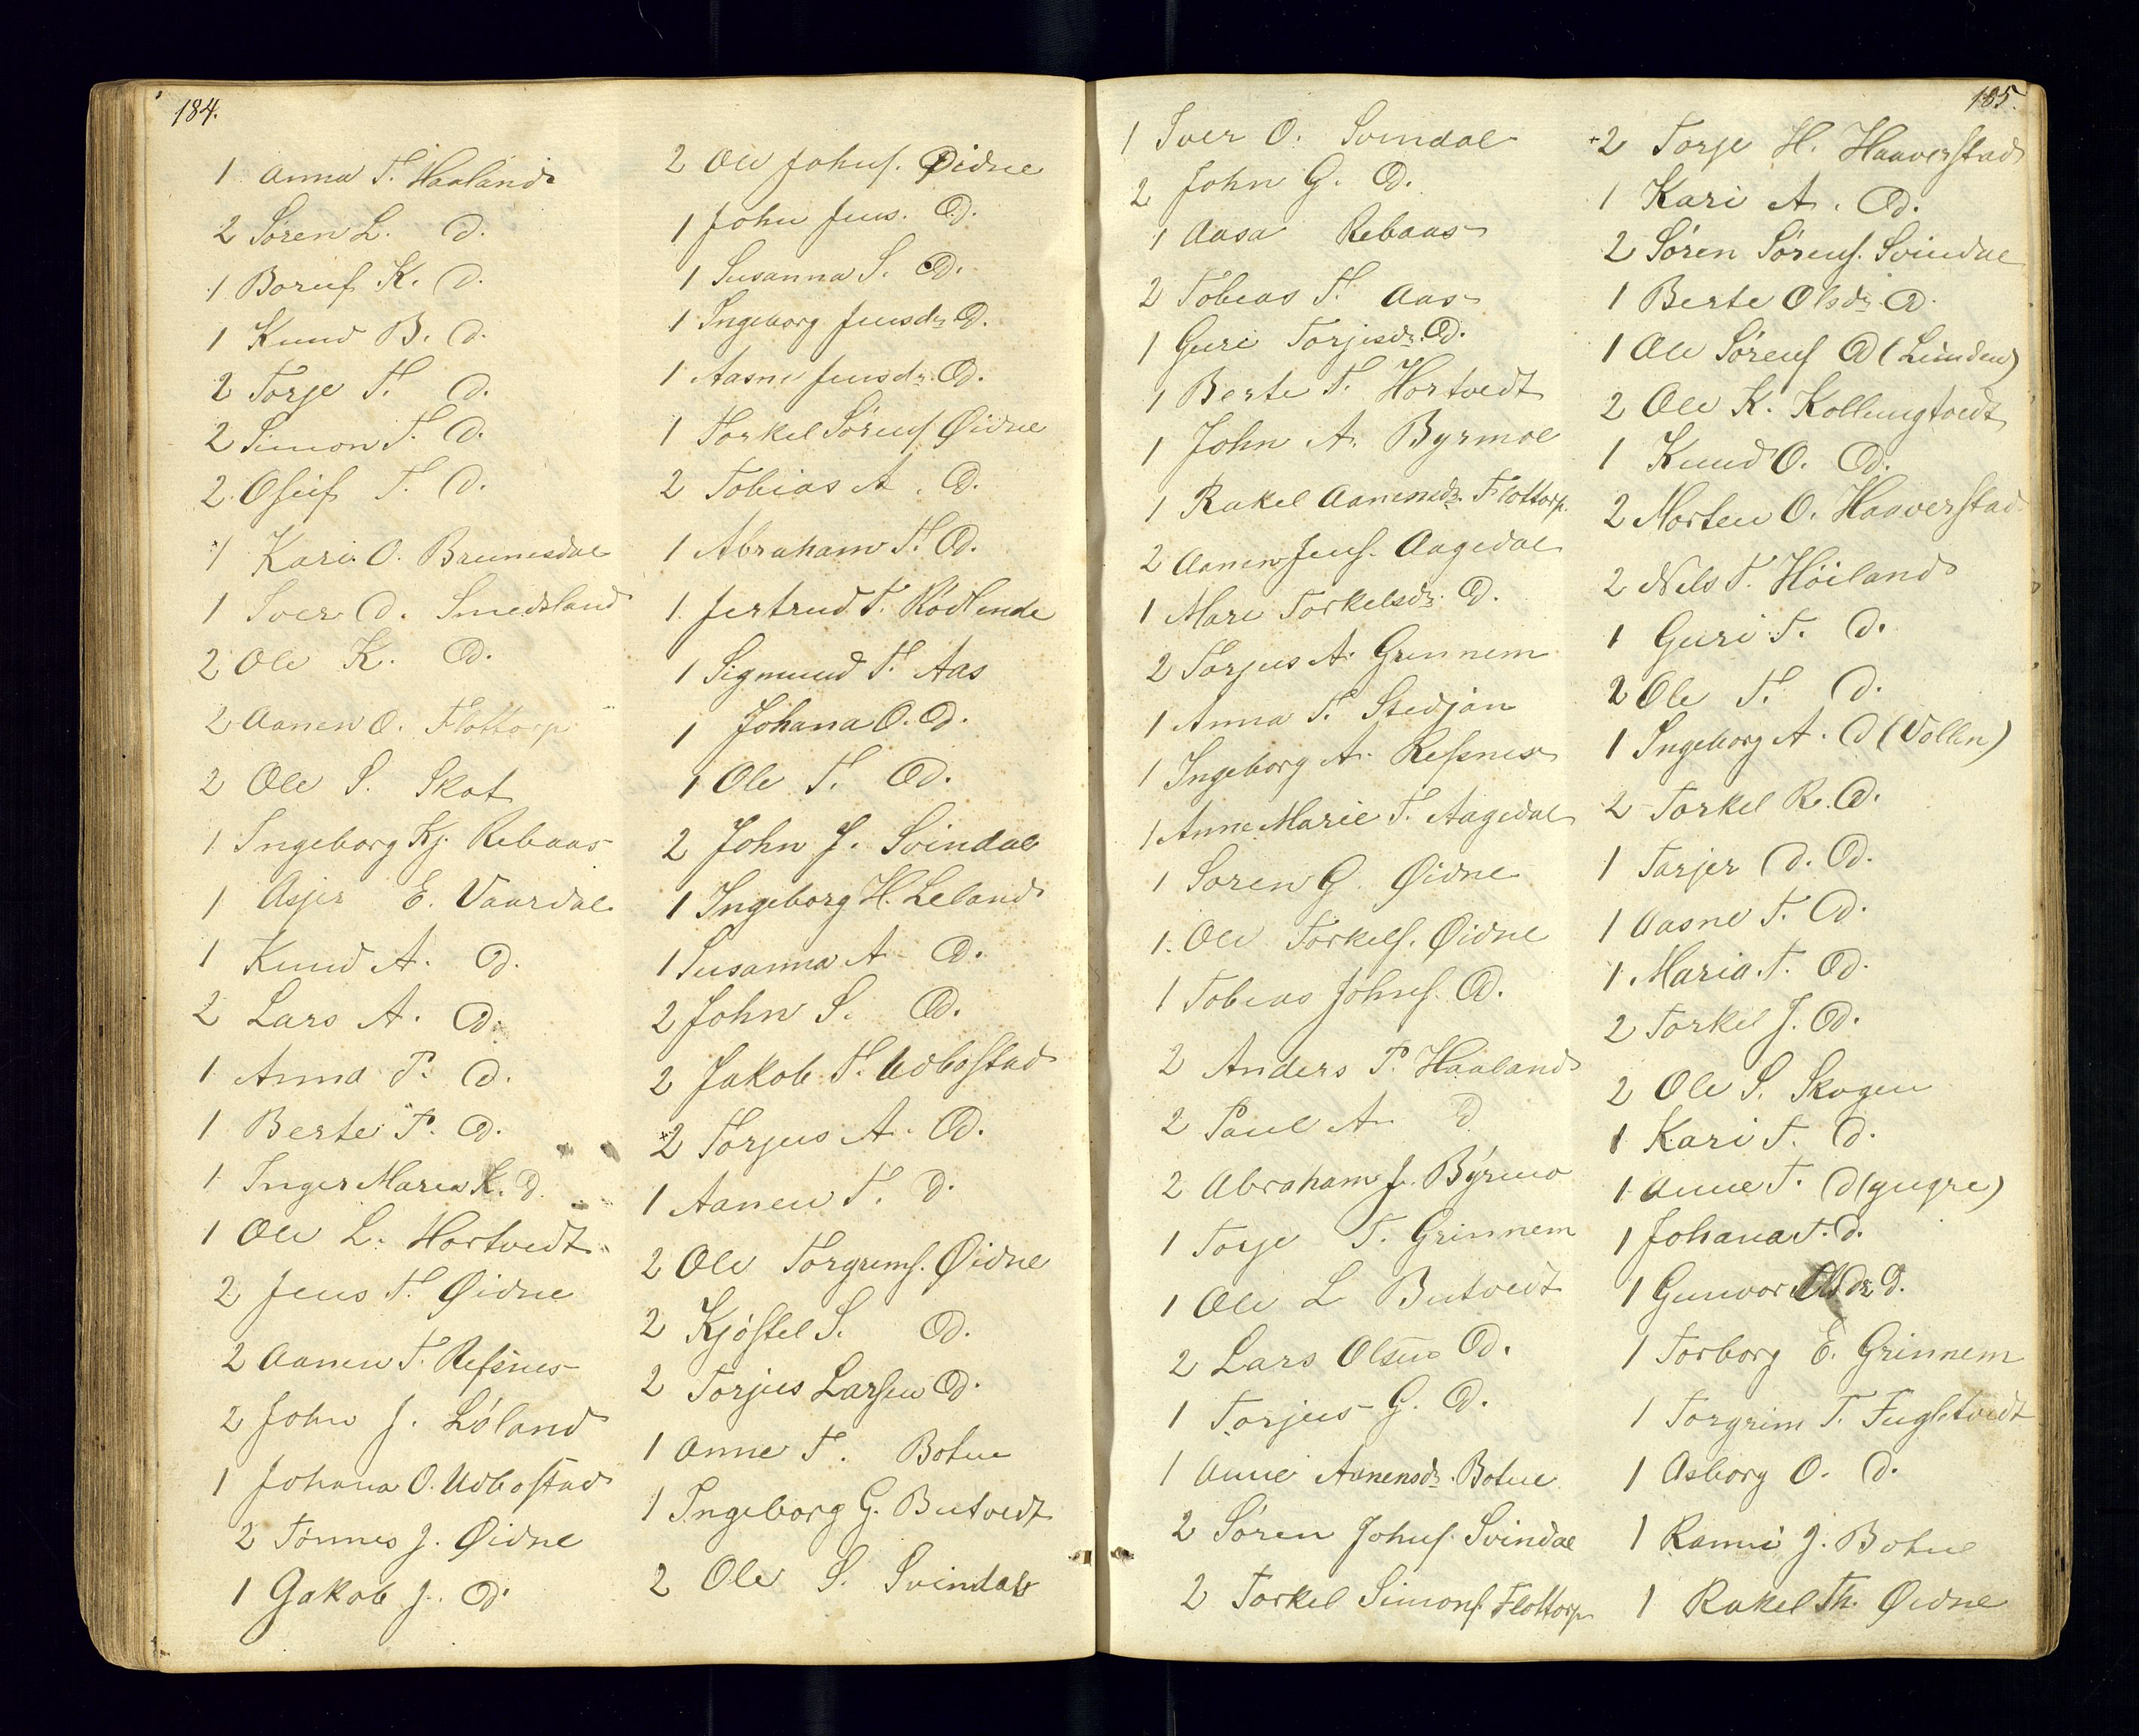 184.
1 Anna T. Haaland
2 Søren L. D.
1 Boruf K. D.
1 Knud B. D.
2 Torje T. D.
2 Simon T. D.
2 Oseif T. D.
1 Kari O. Brunesdal
1 Iver D. Smedsland
2 Ole K. D.
2 Aanen O. Flottorp
2 Ole S. Skot
1 Ingeborg Kj. Rebaas
1 Asjer E. Vaardal
1 Knud A. D.
2 Lars A. D.
1 Anna P. D.
1 Berte P. D.
1 Inger Maria K. D.
1 Ole L. Hortvedt
2 Jens T. Øidne
2 Aanen T. Refsnes
2 John J. Løland
1 Johana O. Udbostad
2 Tønnes J. Øidne
1 Gakob J. D.
2 Ole Johns. Øidne
1 John Jens. D.
1 Susanna S. D.
1 Ingeborg Jensdr D.
1 Aasne Jensdr. D.
1 Torkel Sørens. Øidne
2 Tobias A. D.
1 Abraham T. D.
1 Jertrud T. Rødlende
1 Sigmund T. Aas
1 Johana O. D.
1 Ole T. D.
2 John J. Svindal
1 Ingeborg H. Leland
1 Susanna A. D.
2 John S. D.
2 Jakob T. Udbostad
2 Torjus A. D.
1 Aanen T. D.
2 Ole Torgrims. Øidne
2 Kjøstel S. D.
2 Torjus Larsen D.
1 Anne T. Botne
1 Ingeborg G. Butvedt
2 Ole S. Svindal
185.
1 Iver O. Svindal
2 John G. D.
1 Aasa Rebaas
2 Tobias T. Aas
1 Guri Torjusdr. D.
1 Berte T. Hortvedt
1 John A. Byrmoe
1 Rakel Aanensdr. Flottorp
2 Aanen Jens. Aagedal
1 Mari Torkelsdr. D.
2 Torjus A. Grinnem
1 Anna T. Stedjan
1 Ingeborg A. Refsnes
1 Anne Marie T. Aagedal
1 Søren G. Øidne
1. Ole Torkels. Øidne
1 Tobias Johns. D.
2 Anders P. Haaland
2 Paul A. D
2 Abraham J. Byrmo
1 Torje T. Grinnem
1 Ole L Butvedt
2 Lars Olsen D.
1 Torjus G. D.
1 Anne Aanensdr. Botne
2 Søren Johns. Svindal
2 Torkel Simons. Flottorp
2 Torje H. Haaverstad
1 Kari A. D.
2 Søren Sørens. Svindal
1 Berte Olsdr D.
1 Ole Sørens D (Lunden)
2 Ole K. Kollungtvedt
1 Knud O. D.
2 Morten O. Haaverstad
2 Nels T. Høiland
1 Guri T. D.
2 Ole T. D.
1 Ingeborg A. D (Vollen)
2 Torkel R. D.
1 Tarjer D. D.
1 Aasne T. D.
1. Maria T. D.
2 Torkel J. D.
2 Ole S. Skogen
1 Kari T. D.
1 Anne T. D (yngre)
1 Johana T. D.
1 Gunvor Olsdr D.
1 Torborg E. Grinnem
1 Torgrim T. Fugletvedt
1 Asborg O. D.
1 Ranni J. Botne
1 Rakel Th. Øidne